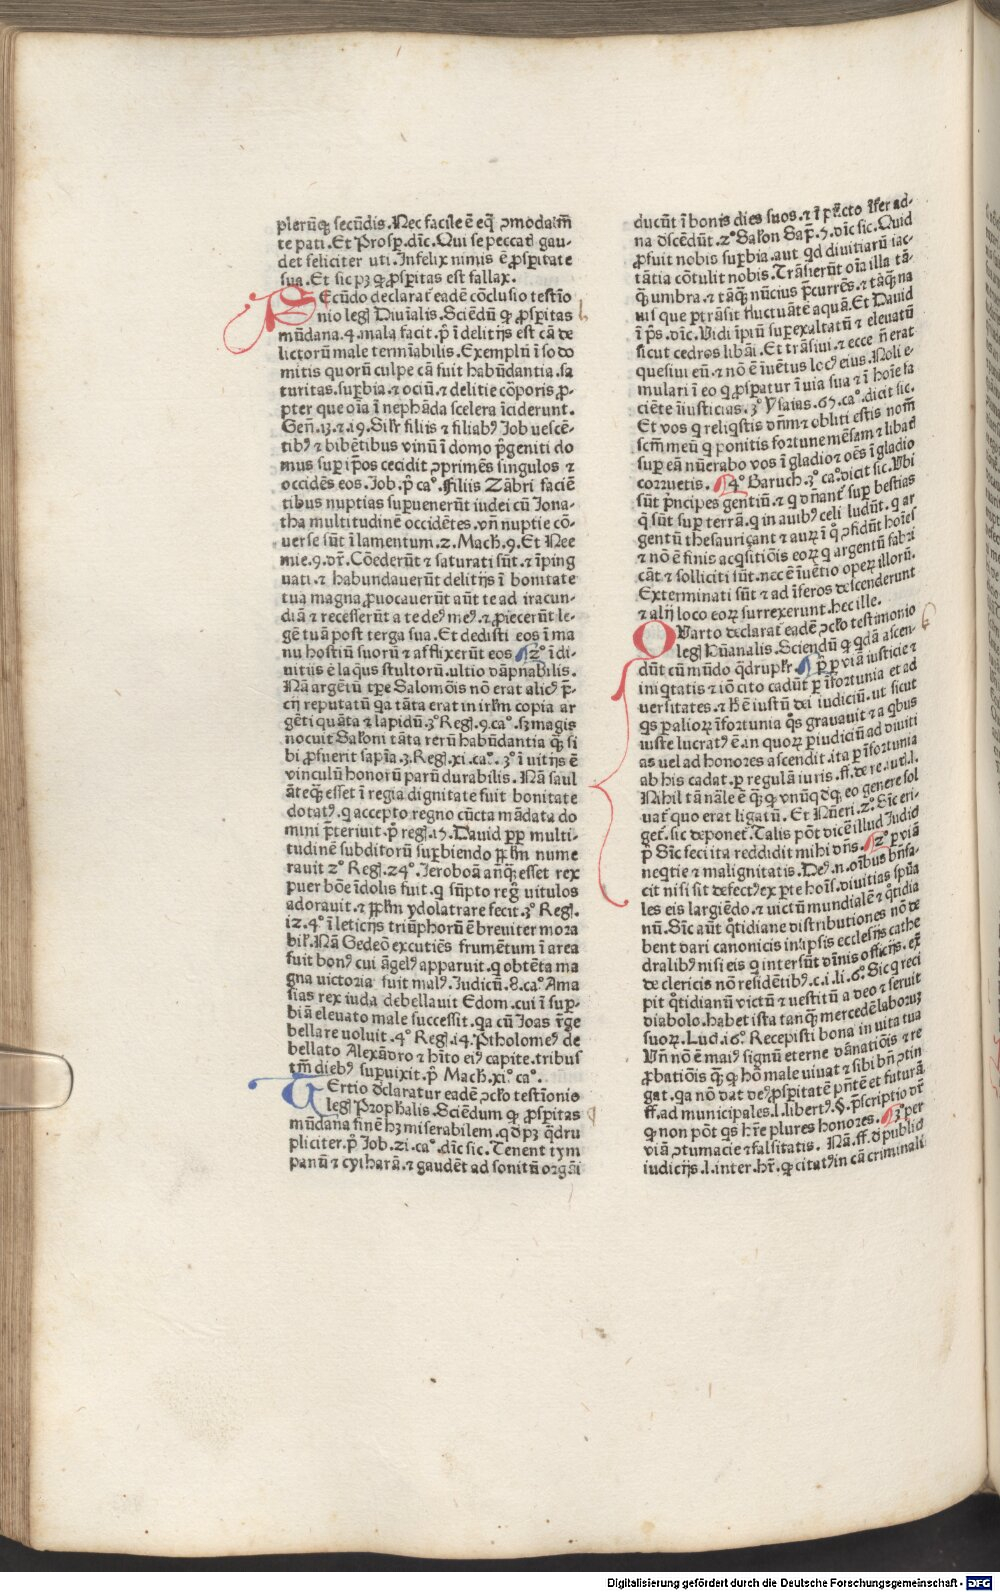 plerūq; secūdis. Nec facile ē eq̄ ꝯmoda im̄
te pati. Et Prosp̱. dīc. Qui se peccatī gau-
det feliciter uti. Infelix nimis ē ꝓsp̱itate
sua. Et sic pꝫ ꝙ ꝓsp̱itas est fallax.
SEcūdo declarat̄ eadē cōclusio testīo
nio legꝭ Diuīalis. Sciēdū ꝙ ꝓsp̱itas
mūdana .4. mala facit. p̄ ī delitijs est cā de
lictorū male termīabilis. Exemplū ī sodo
mitis quorū culpe cā fuit habūdantia. sa
turitas. sup̱bia ⁊ ociū. ⁊ delitie cōporis ꝓ-
pter que oīa ī nephāda scelera īciderunt.
Gen̄. 13. ⁊ 19. Silr̄ filiis ⁊ filiabꝰ Iob uescē-
tibꝰ ⁊ bibētibus vinū ī domo p̄geniti do
mus sup̱ ip̄os cecidit ꝯprimēs singulos ⁊
occidēs eos. Iob. p̄ caº. Filiis Zābri faciē
tibus nuptias sup̱uenerūt iudei cū Iona-
tha multitudinē occidētes. vn̄ nuptie cō-
uerse sūt ī lamentum. 2. Mach. 9. Et Nee
mie. 9. dr̄. Cōederūt ⁊ saturati sūt. ⁊ īping
uati. ⁊ habundauerūt delitijs ī bonitate
tua magna ꝓuocauerūt aūt te ad iracun-
diā ⁊ recesserūt a te deꝰ meꝰ ⁊ ꝓiecerūt le-
gē tuā post terga sua. Et dedisti eos ī ma
nu hostiū suorū ⁊ afflixerūt eos 2º ī di-
uitijs ē laqꝰs stultorū. ultio dāpnabilis.
Nā argētū tp̄e Salomōis nō erat alicꝰ p̄-
cij reputatū qa tāta erat in irlm̄ copia ar
gēti quāta ⁊ lapidū. 3º Regꝭ. 9. caº. sꝫ magis
nocuit Salom̄ tāta rerū habūdantia qꝫ si
bi ꝓfuerit sapīa. 3. Regꝭ. xi. caº. 3º ī uitijs ē
vinculū honorū parū durabilis. Nā saul
āteqꝫ esset ī regia dignitate fuit bonitate
dotatꝰ. q accepto regno cūcta mādata do
mini p̄teriuit. p̄ regꝭ. 15. Dauid ꝓp̱ multi-
tudinē subditorū sup̱biendo ppl̄m nume
rauit 2º Regꝭ. 24º. Ieroboā an̄qꝫ esset rex
puer bōe īdolis fuit. q sūpto regꝭ uitulos
adorauit. ⁊ ppl̄m ydolatrare fecit. 3º Regꝭ.
12. 4º ī leticijs triūphorū ē breuiter mora
bil̄. Nā Gedeō excutiēs frumētum ī area
fuit bonꝰ cui āgelꝰ apparuit. q obtēta ma
gna victoria fuit malꝰ. Iudicū. 8. caº. Ama
sias rex iuda debellauit Edom. cui ī sup̱-
biā eleuato male successit. qa cū Ioas r̄ge
bellare uoluit. 4º Regꝭ. 14. Ptholomeꝰ de
bellato Alexādro ⁊ hīto eiꝰ capite. tribus
tm̄ diebꝰ sup̱uixit. p̄ Mach. xi. caº.
TErtio declaratur eadē ꝯcl̄o testīonio
legꝭ Prophalis. Sciēdum ꝙ ꝓsp̱itas
mūdana finē hꝫ miserabilem. q̄d pꝫ q̄dru
pliciter. p̄ Iob. 21. caº. dīc sic. Tenent tym
panū ⁊ cytharā. ⁊ gaudēt ad sonitū orgāi
ducūt ī bonis dies suos. ⁊ ī pūcto īfer ad-
na dscēdūt. 2º Salōn Sap̄. 5. dīc sic. Quid
ꝓfuit nobis sup̱bia. aut qd diuitiarū iac-
tātia cōtulit nobis. Trāsierūt oīa illa tā-
qꝫ umbra. ⁊ tāqꝫ nūcius p̄currēs. ⁊ tāqꝫ na
uis que p̱trāsit fluctuātē aquā. Et Dauid
ī ps̄. dīc. Vidi īpiū sup̱exaltatū ⁊ eleuatū
sicut cedros libāi. Et trāsiui. ⁊ ecce n̄ erat
quesiui eū. ⁊ nō ē īuētus locꝰ eius. Noli e-
mulari ī eo q ꝓsp̱atur ī uia sua ⁊ ī hoīe fa
ciēte īiusticias. 3º Ysaias. 65. caº. dicit sic.
Et vos q reliqstis dn̄m ⁊ obliti estis nom̄
scm̄ meū q ponitis fortune mēsam ⁊ libatꝭ
sup̱ eā nūerabo vos ī gladio ⁊ oēs ī gladio
corruetis. 4º Baruch. 3º caº. dicit sic. Vbi
sūt p̄ncipes gentiū. ⁊ q dn̄ant̄ sup̱ bestias
q̄ sūt sup̱ terrā. q in auibꝰ celi ludūt. q ar
gentū thesauriçant ⁊ auꝝ ī q̊ ꝯfidūt hoīes
⁊ nō ē finis acqsitiōis eoꝝ q argentū fabri
cāt ⁊ solliciti sūt. nec ē īuētio opeꝝ illorū.
Exterminati sūt ⁊ ad īferos descenderunt
⁊ alij loco eoꝝ surrexerunt. hec ille.
QVarto declarat̄ eadē ꝯcl̄o testimonio
legꝭ Hūanalis. Sciendū ꝙ qdā ascen-
dūt cū mūdo q̄druplr̄. p̄ p̱ viā iusticie ⁊
iniqtatis ⁊ iō cito cadūt p̱ īfortunia et ad
uersitates. ⁊ h̄ ē iustū dei iudiciū. ut sicut
qs p̱ alioꝝ īfortunia qs grauauit ⁊ a qbus
iuste lucratꝰ ē. an quoꝝ p̱ iudiciū ad diuiti
as uel ad honores ascendit. ita p̱ īfortunia
ab his cadat. p̱ regulā iuris. ff. de re. iud. l.
Nihil tā nāle ē qꝫ. ꝙ vnūqdqꝫ eo genere sol
uat̄ quo erat ligatū. Et Nūeri. 2. Sīc eri-
get̄. sic deponet̄. Talis pōt dicē illud Iudicū
p̄ Sīc feci ita reddidit mihi dn̄s. 2º p̱ viā
neqtie ⁊ malignitatis. Deꝰ. n. oībus bn̄fa-
cit nisi sit defectꝰ ex p̱te hoīs. diuitias sp̄ua
les eis largiēdo. ⁊ uictū mundialē ⁊ q̊tidia
nū. Sīc aūt q̊tidiane distributiones nō de
bent dari canonicis in ip̄sis ecclesijs cathe
dralibꝰ nisi eis q intersūt dīnis officijs. ex̄
de clericis nō residētibꝰ. c. i. li. 6º. Sic q reci
pit q̊tidianū victū ⁊ uestitū a deo ⁊ seruit
diabolo. habet ista tanqꝫ mercedē laboꝝ
suoꝝ. Luc. 16º. Recepisti bona in uita tua
Vn̄ nō ē maiꝰ signū eterne dānatiōis ⁊ re
ꝓbatiōis qꝫ. ꝙ hō male viuat ⁊ sibi bn̄ ꝯtin
gat. qa nō dat deꝰ ꝓsp̱itatē pn̄tē et futurā.
ff. ad municipales. l. libertꝰ. §. p̄scriptio dr̄
ꝙ non pōt qs hr̄e plures honores. 3. per
viā ꝯtumacie ⁊ falsitatis. Nā. ff. d publicꝭ
iudicijs. l. inter. hr̄. ꝙ citatꝰ in cā criminali
Digitalisierung gefördert durch die Deutsche Forschungsgemeinschaft - DFG